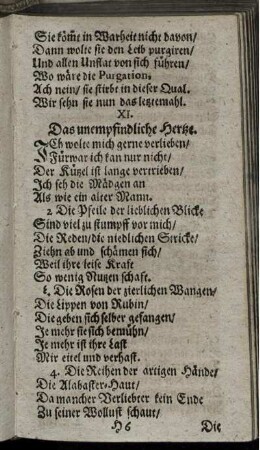 Sie kōmt in Warheit nicht davon/
Dann wolte sie den Leib purgiren/
Und allen Unflat von sich führen/
Wo wäre die Purgation,
Ach nein/ sie stirbt in dieser Qual.
Wir sehn sie nun das letztemahl.
XI.
Das unempfindliche Hertze.
ICh wolte mich gerne verlieben/
Fürwar ich kan nur nicht/
Der Kützel ist lange vertrieben/
Ich seh die Mädgen an
Als wie ein alter Mann.
2 Die Pfeile der lieblichen Blicke
Sind viel zu stumpff vor mich/
Die Reden/ die niedlichen Stricke/
Ziehn ab und schämen sich/
Weil ihre leise Krafft
So wenig Nutzen schaft.
3. Die Rosen der zierlichen Wangen/
Die Lippen von Rubin/
Die geben sich selber gefangen/
Je mehr sie sich bemühn/
Je mehr ist ihre Last
Mir eitel und verhast.
4. Die Reihen der artigen Hände/
Die Alabaster-Haut/
Da mancher Verliebter kein Ende
Zu seiner Wollust schaut/
H6 Die